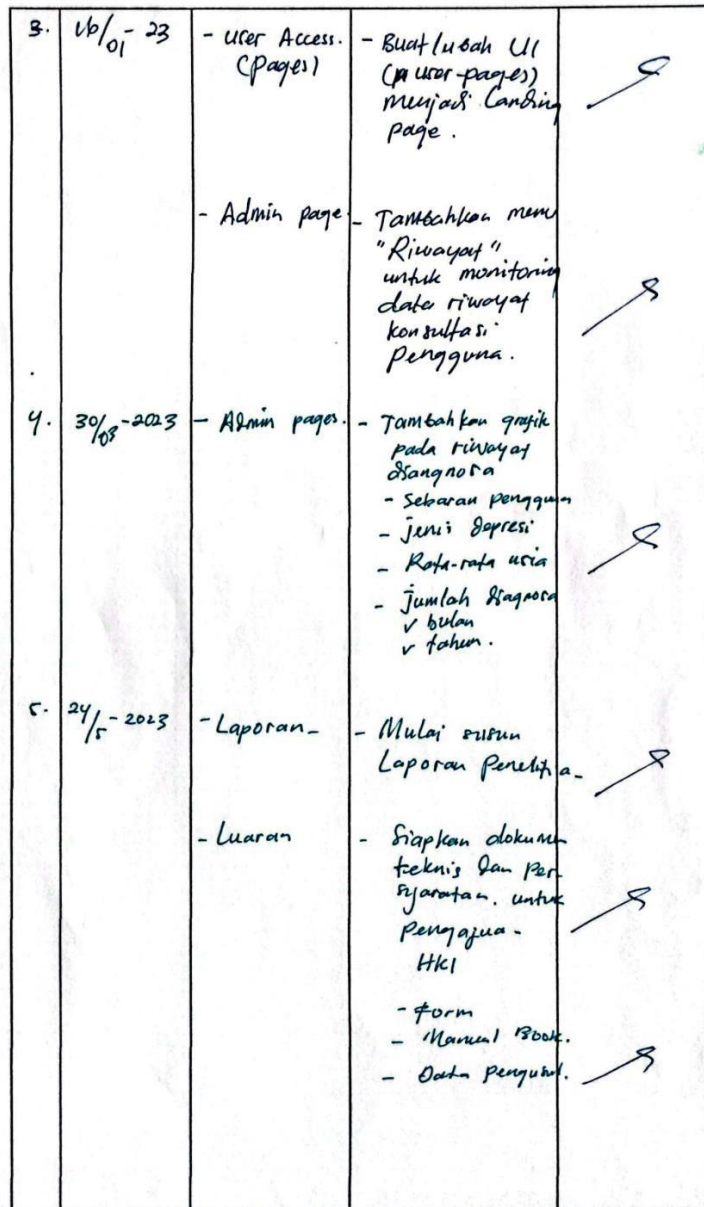 3.
16/01 - 23
- User Access.
(Pages)
- Buat/ubah UI
(user-pages)
menjadi Landing
page.
- Admin page.
- Tambahkan menu
"Riwayat"
untuk monitoring
data riwayat
konsultasi
Pengguna.
4.
30/03 - 2023
- Admin pages.
- Tambahkan grafik
pada riwayat
diangnosa
- Sebaran pengguna
- jenis depresi
- Rata-rata usia
- jumlah diagnosa
v bulan
v tahun.
5.
24/5 - 2023
- Laporan -
- Mulai susun
Laporan Penelitia-
- Luaran
- Siapkan dokumen
teknis dan Per-
syaratan. untuk
Pengajua-
HKI
- Form
- Manual Book.
- Data Pengusul.